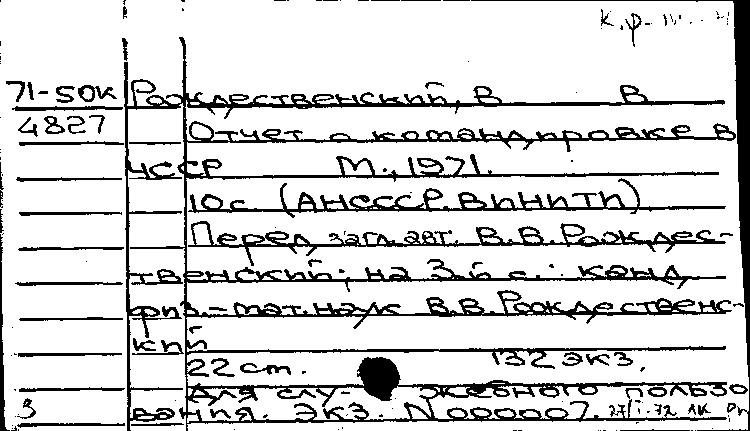 71-50к Рождественский, В В
4827 Отчет о командировке в
ЧССР М., 1971.
10с. (АНСССР. ВИНИТИ)
Перед загл. авт. В.В. Рождес-
твенский; на 3.б с.: канд.
физ.-мат. наук В.В. Рождественс-
кий
22 cm. 132 экз.
Для слу- жебного пользо
3 вания. Экз. N000007. 27/I-72 ЛК